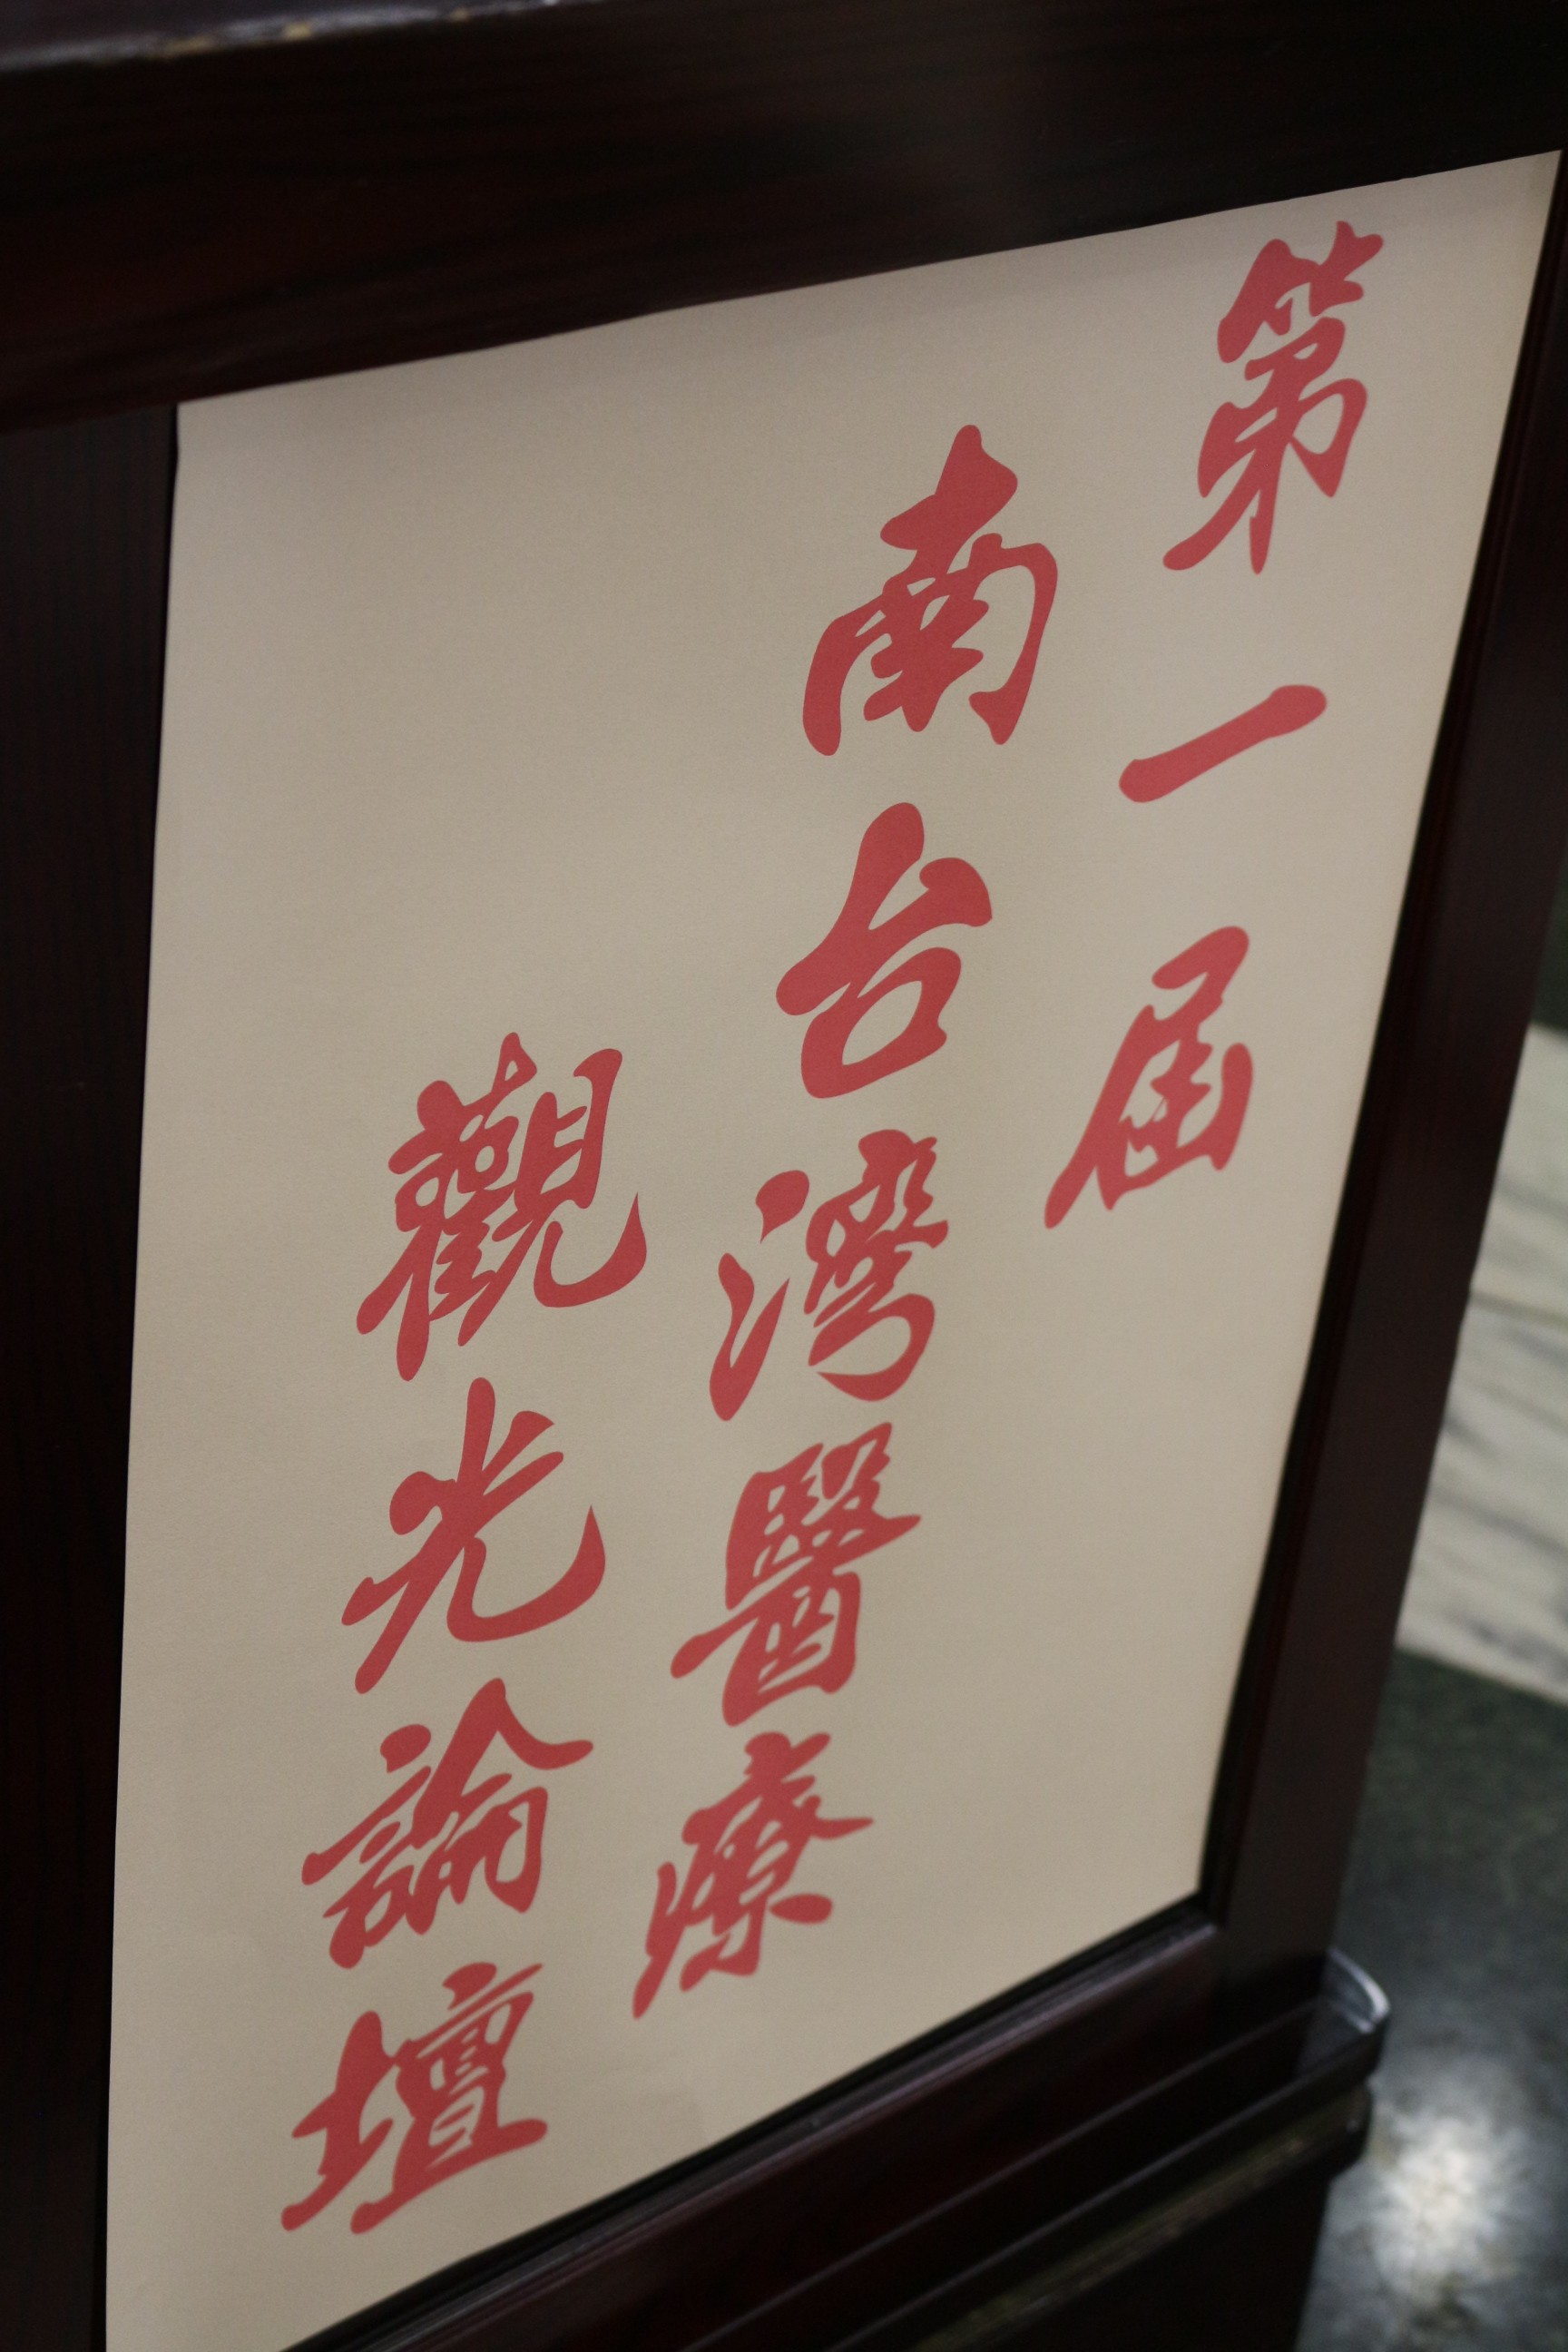 第一屆
南台灣醫療
觀光論壇